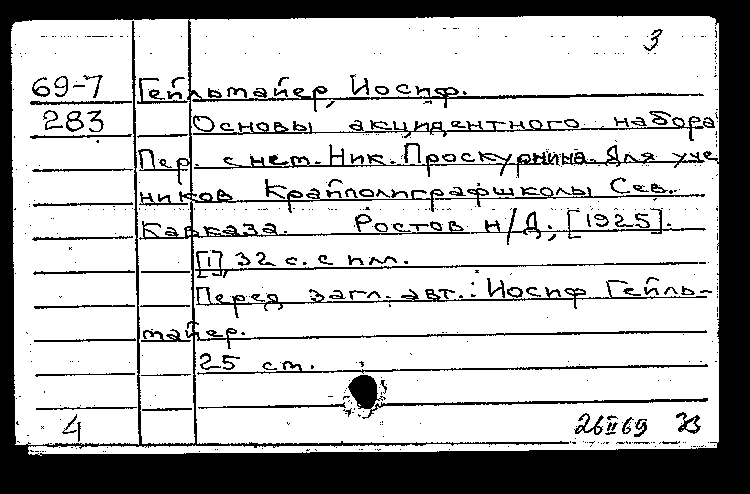 3
69-7 Гейльтайер, Иосиф.
283 Основы акцидентного набора
Пер. с нем. Ник. Проскурнина. Для уче
ников Крайполиграфшколы Сев.
Кавказа. Ростов н/Д, [1925].
[1], 32 с. с илл.
Перед загл. авт.: Иосиф Гейль-
тайер.
25 ст.
4 26 II 69